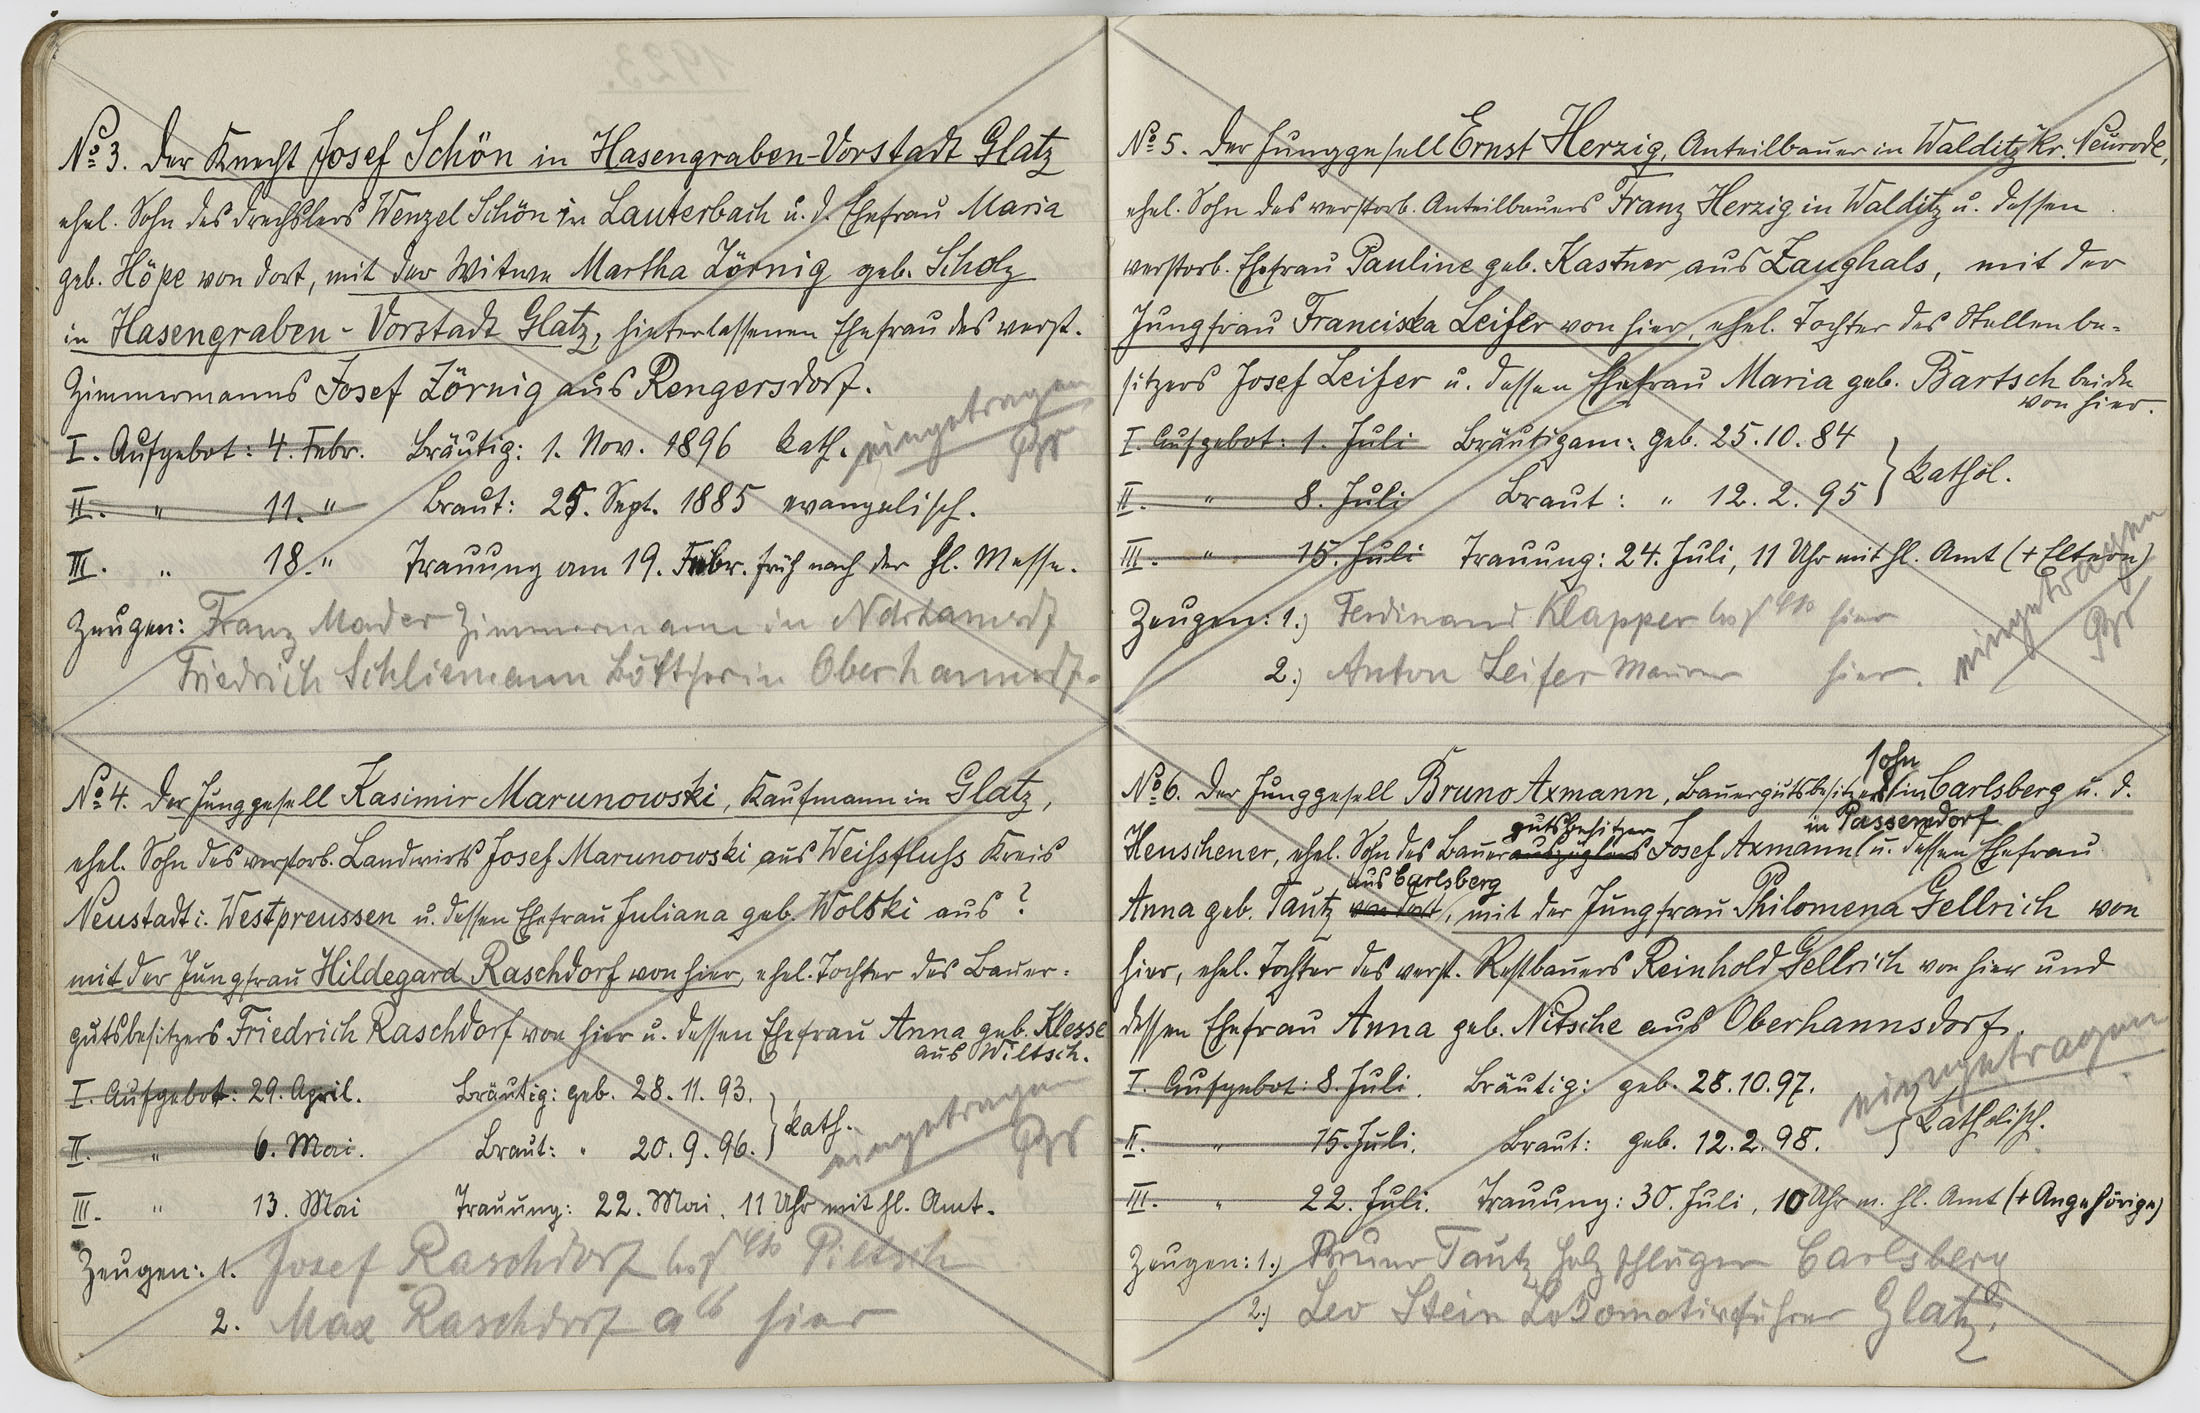 No 3. Der Knecht Josef Schön in Hasengraben-Vorstadt Glatz
ehel. Sohn des Drechslers Wenzel Schön in Lauterbach u. d. Ehefrau Maria
geb. Höpe von dort, mit der Witwe Martha Zörnig geb. Scholz
in Hasengraben-Vorstadt Glatz, hinterlassenen Ehefrau des verst.
Zimmermanns Josef Zörnig aus Rengersdorf.
I. Aufgebot: 4. Febr. Bräutig: 1. Nov. 1896 kath.
eingetragen
II. " 11. " Braut: 25. Sept. 1885 evangelisch.
III. " 18. " Trauung am 19. Febr. früh nach der hl. Messe.
Zeugen: Franz Mader Zimmermann in
Friedrich Schliemann Böttcher in Oberhannsdf.
No 4. Der Junggesell Kasimir Marunowski, Kaufmann in Glatz,
ehel. Sohn des verstorb. Landwirts Josef Marunowski aus Weissfluss Kreis
Neustadt i. Westpreussen u. dessen Ehefrau Juliana geb. Wolski aus ?
mit der Jungfrau Hildegard Raschdorf von hier, ehel. Tochter des Bauer-
gutsbesitzers Friedrich Raschdorf von hier u. dessen Ehefrau Anna geb. Klesse
aus Wiltsch.
I. Aufgebot: 29. April. Bräutig: geb. 28. 11. 93.
II. " 6. Mai. Braut: " 20. 9. 96. } kath.
eingetragen
III. " 13. Mai Trauung: 22. Mai, 11 Uhr mit hl. Amt.
Zeugen: 1. Josef Raschdorf Piltsch
2. Max Raschdorf hier
No 5. Der Junggesell Ernst Herzig, Anteilbauer in Walditz Kr. Neurode,
ehel. Sohn des verstorb. Anteilbauers Franz Herzig in Walditz u. dessen
verstorb. Ehefrau Pauline geb. Kastner aus Zaughals, mit der
Jungfrau Franciska Leifer von hier, ehel. Tochter des Stellenbe-
sitzers Josef Leifer u. dessen Ehefrau Maria geb. Bartsch beide
von hier.
I. Aufgebot: 1. Juli Bräutigam: geb. 25. 10. 84
II. " 8. Juli Braut: " 12. 2. 95 } kathol.
III. " 15. Juli Trauung: 24. Juli, 11 Uhr mit hl. Amt (+ Eltern)
Zeugen: 1.) Ferdinand Klapper hier
2.) Anton Leifer Maurer hier.
eingetragen
No 6. Der Junggesell Bruno Axmann, Bauergutsbesitzerssohn in Carlsberg u. d.
gutsbesitzer in Passendorf
Heuscheuer, ehel. Sohn des Bauerauszüglers Josef Axmann u. dessen Ehefrau
aus Carlsberg
Anna geb. Tautz von dort, mit der Jungfrau Philomena Gellrich von
hier, ehel. Tochter des verst. Restbauers Reinhold Gellrich von hier und
dessen Ehefrau Anna geb. Nitsche aus Oberhannsdorf.
I. Aufgebot: 8. Juli. Bräutig: geb. 28. 10. 97.
eingetragen
II. " 15. Juli. Braut: geb. 12. 2. 98. } Katholisch.
III. " 22. Juli. Trauung: 30. Juli, 10 Uhr m. hl. Amt (+ Angehörige)
Zeugen: 1.) Bruno Tautz Holzschläger Carlsberg
2.) Leo Stein Lokomotivführer Glatz.